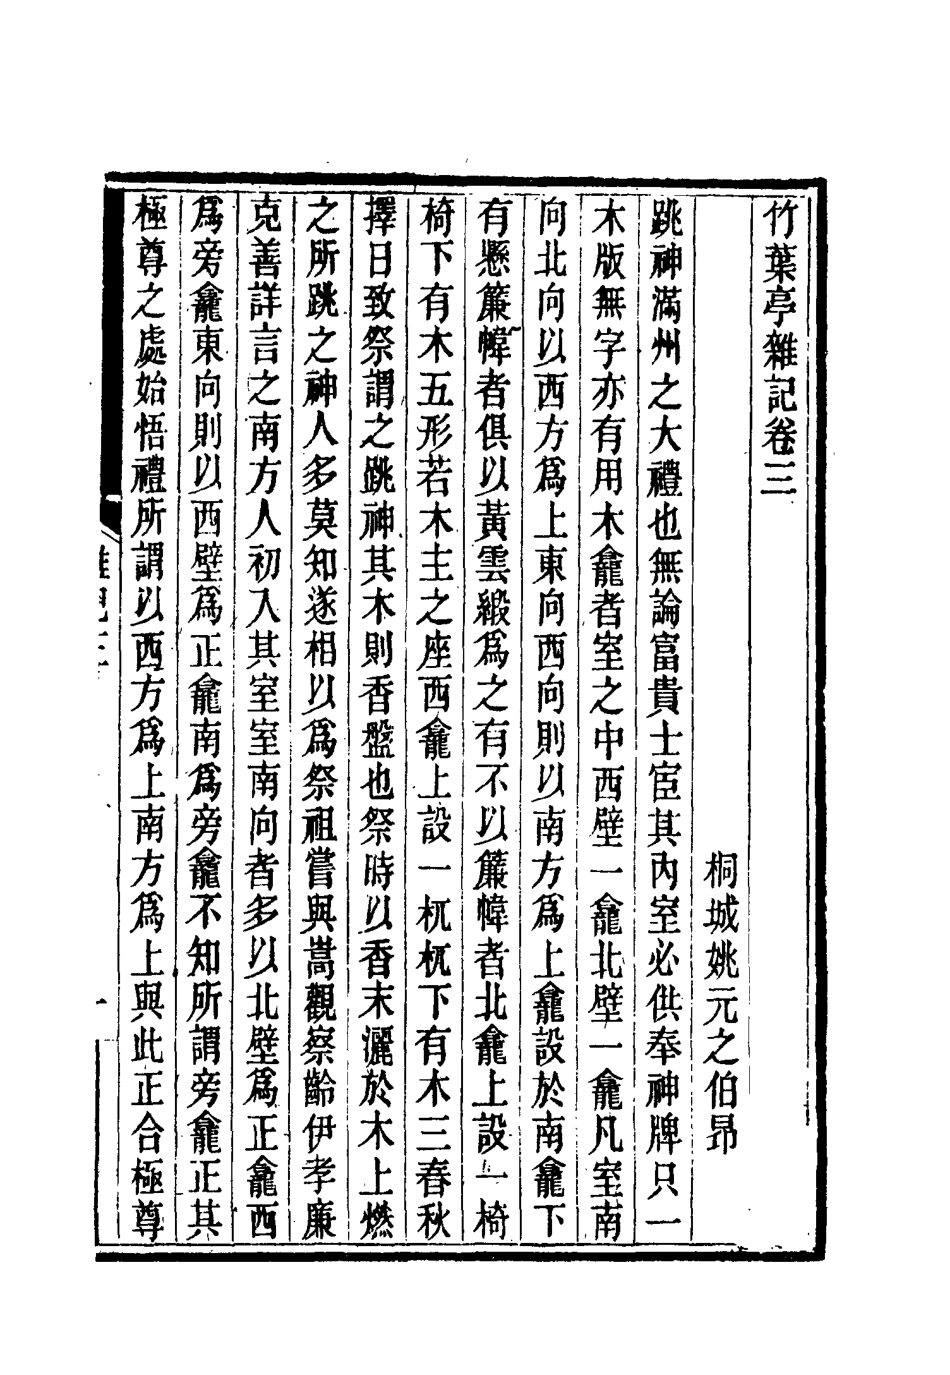 竹葉亭雜記卷三
桐城姚元之伯昂
跳神滿州之大禮也無論富貴士宦其內室必供奉神牌只一
木版無字亦有用木龕者室之中西壁一龕北壁一龕凡室南
向北向以西方爲上東向西向則以南方爲上龕設於南龕下
有懸簾幃者俱以黃雲緞爲之有不以簾幃者北龕上設一椅
椅下有木五形若木主之座西龕上設一杌杌下有木三春秋
擇日致祭謂之跳神其木則香盤也祭時以香末灑於木上燃
之所跳之神人多莫知遂相以爲祭祖嘗與嵩觀察齡伊孝廉
克善詳言之南方人初入其室室南向者多以北壁爲正龕西
爲旁龕東向則以西壁爲正龕南爲旁龕不知所謂旁龕正其
極尊之處始悟禮所謂以西方爲上南方爲上與此正合極尊